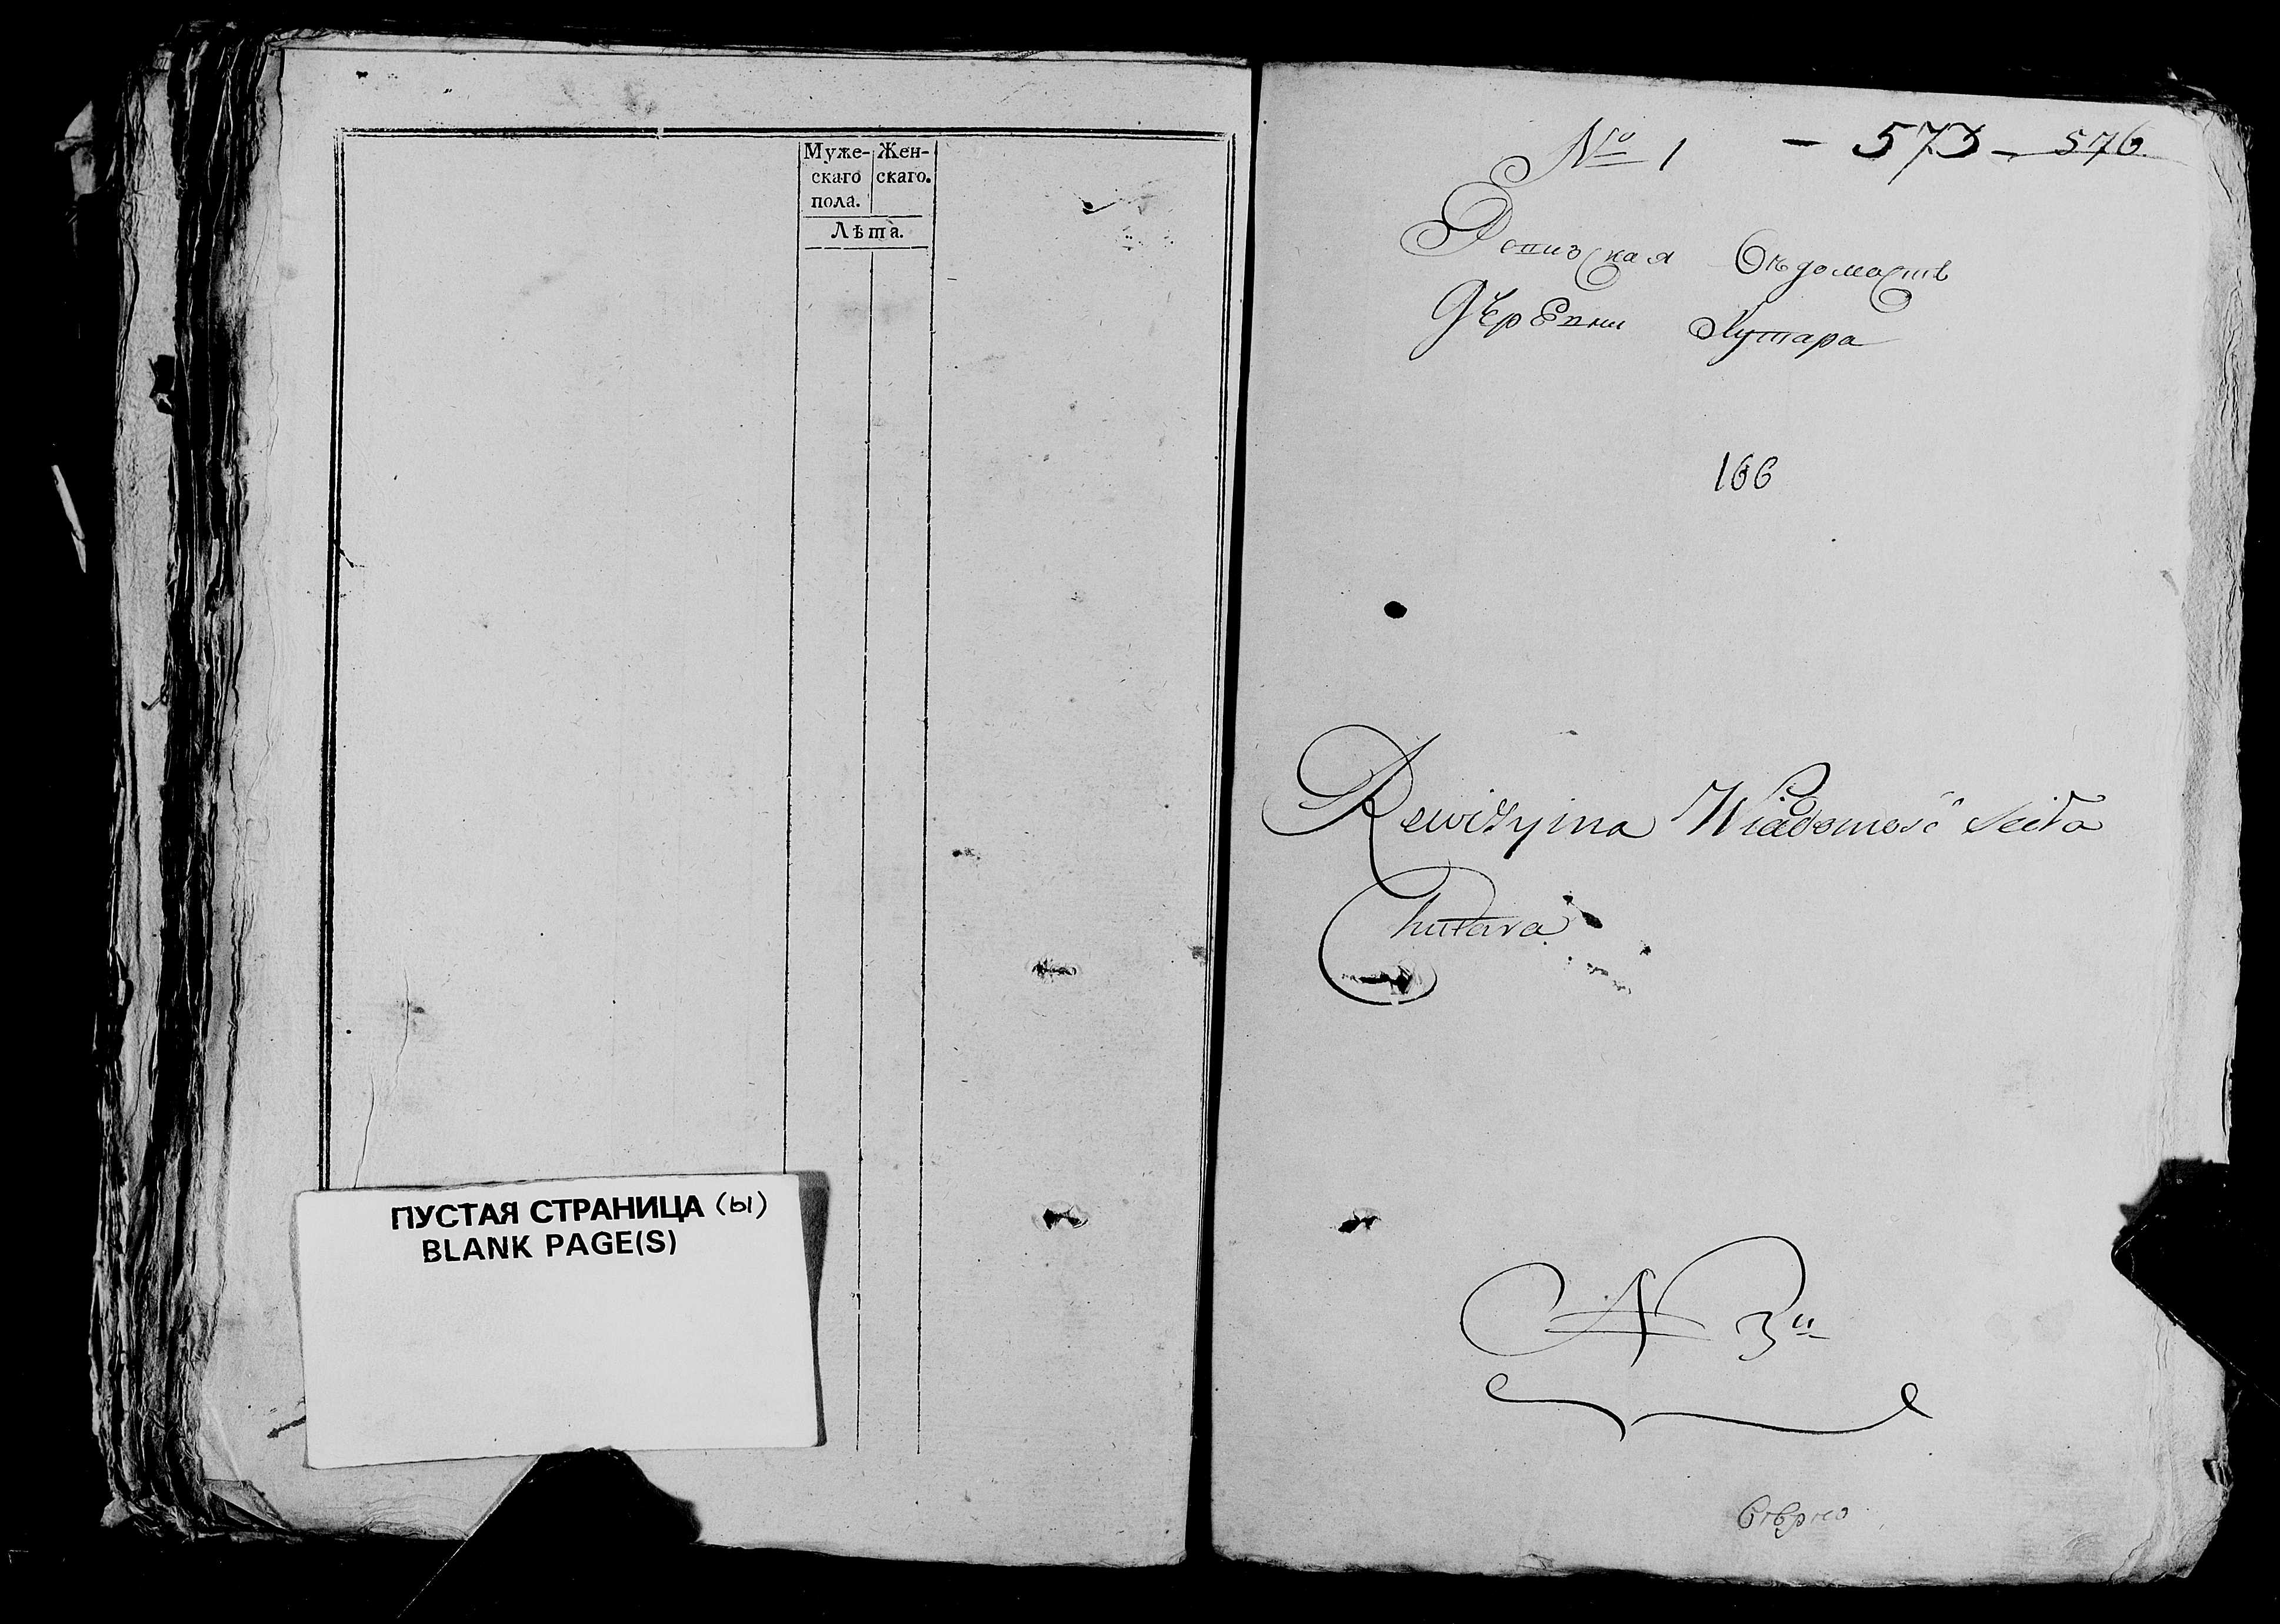 Муже- Жен-
скаго скаго.
пола.
Лѣта.
ПУСТАЯ СТРАНИЦА (ы)
BLANK PAGE(S)
№ 1 - 573 - 576
Ревизская Вѣдомасть
Дѣревни Хутара
166
Rewizyina Wiadomość Seła
Chutara
№ 3й